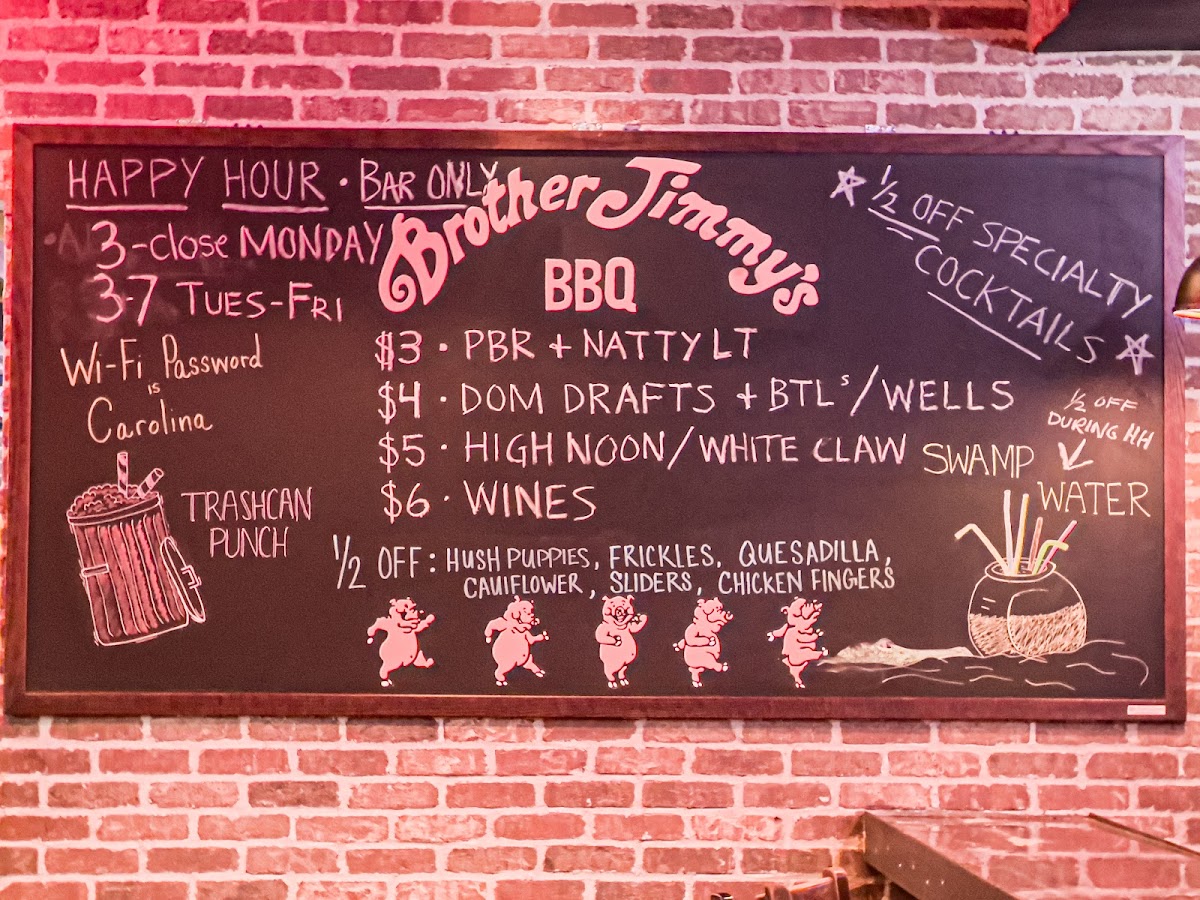 HAPPY HOUR · BAR ONLY
3-close MONDAY
3-7 TUES-FRI
Wi-Fi Password
is
Carolina
TRASHCAN
PUNCH
Brother Jimmy's
BBQ
$3 · PBR + NATTY LT
$4 · DOM DRAFTS + BTLs/WELLS
$5 · HIGH NOON/WHITE CLAW
$6 · WINES
1/2 OFF: HUSH PUPPIES, FRICKLES, QUESADILLA,
CAUIFLOWER, SLIDERS, CHICKEN FINGERS
1/2 OFF SPECIALTY
COCKTAILS
1/2 OFF
DURING HH
SWAMP
WATER